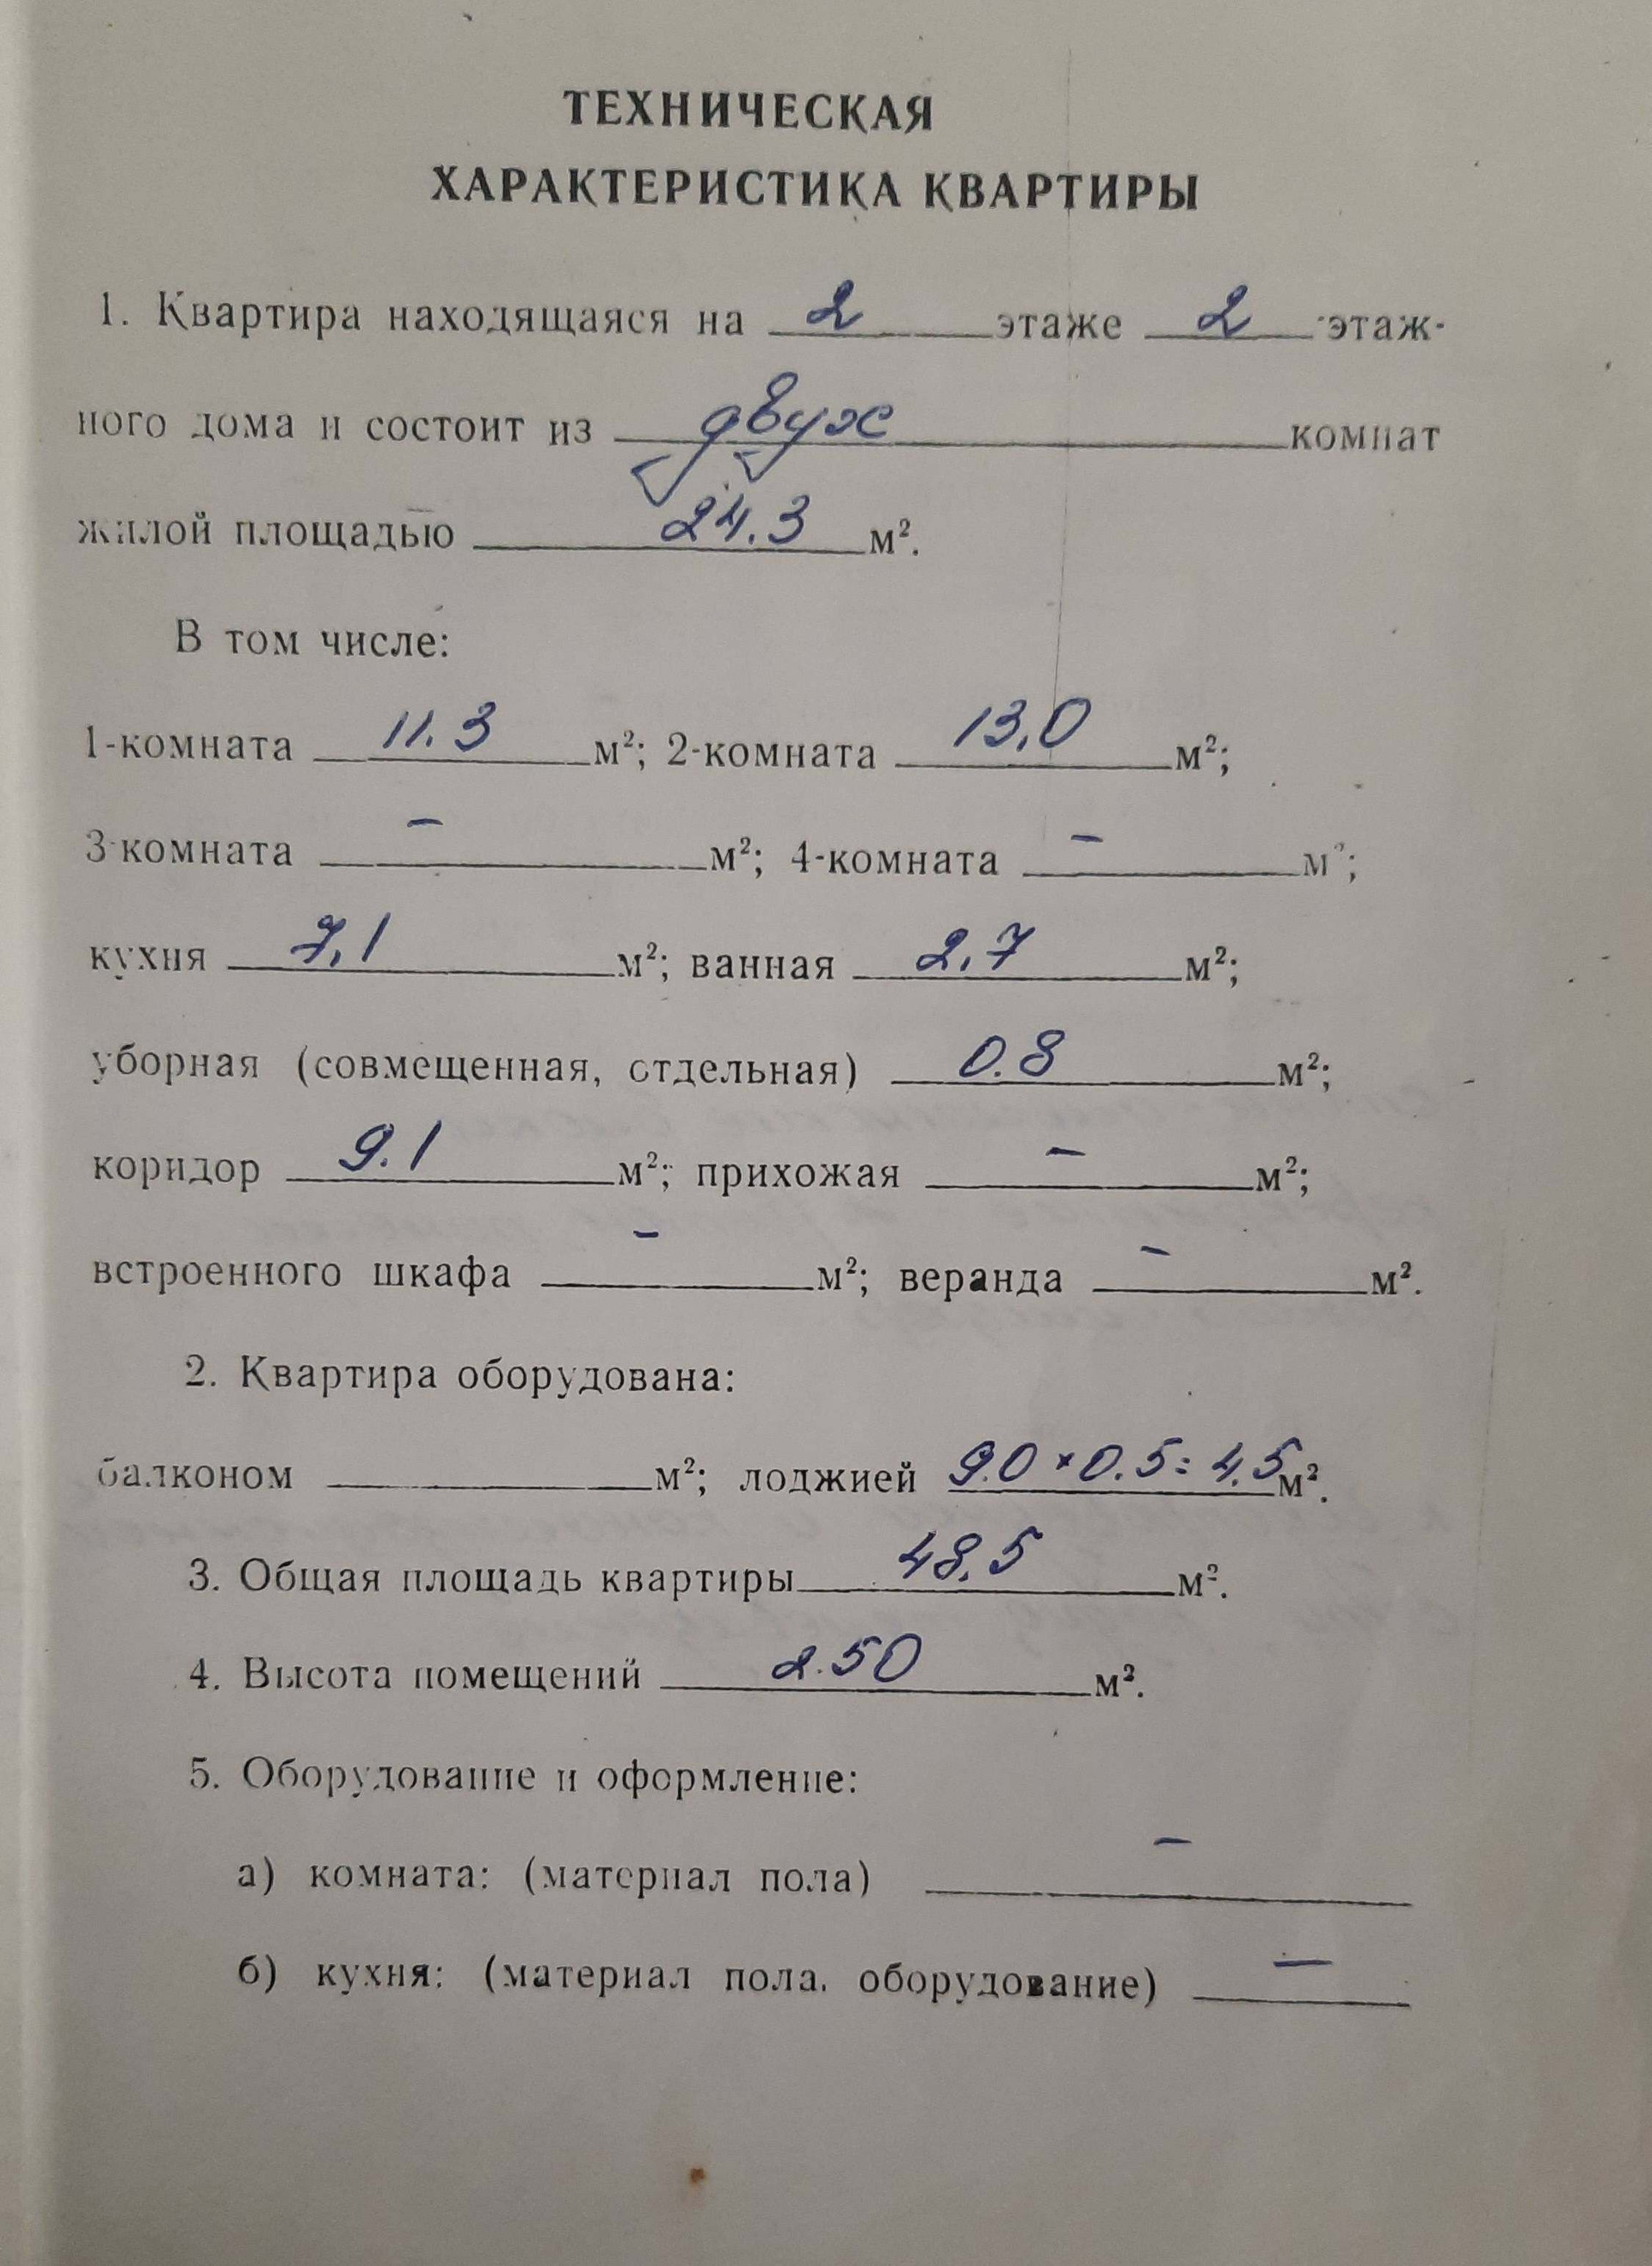 ТЕХНИЧЕСКАЯ
ХАРАКТЕРИСТИКА КВАРТИРЫ
1. Квартира находящаяся на 2 этаже 2 -этаж-
ного дома и состоит из двух комнат
жилой площадью 24.3 м².
В том числе:
1-комната 11.3 м²; 2-комната 13,0 м²;
3-комната – м²; 4-комната – м²;
кухня 7,1 м²; ванная 2,7 м²;
уборная (совмещенная, отдельная) 0.8 м²;
коридор 9.1 м²; прихожая – м²;
встроенного шкафа – м²; веранда – м².
2. Квартира оборудована:
балконом м²; лоджией 9.0 × 0.5 = 4,5 м².
3. Общая площадь квартиры 48,5 м².
4. Высота помещений 2.50 м².
5. Оборудование и оформление:
а) комната: (материал пола) –
б) кухня: (материал пола. оборудование) –